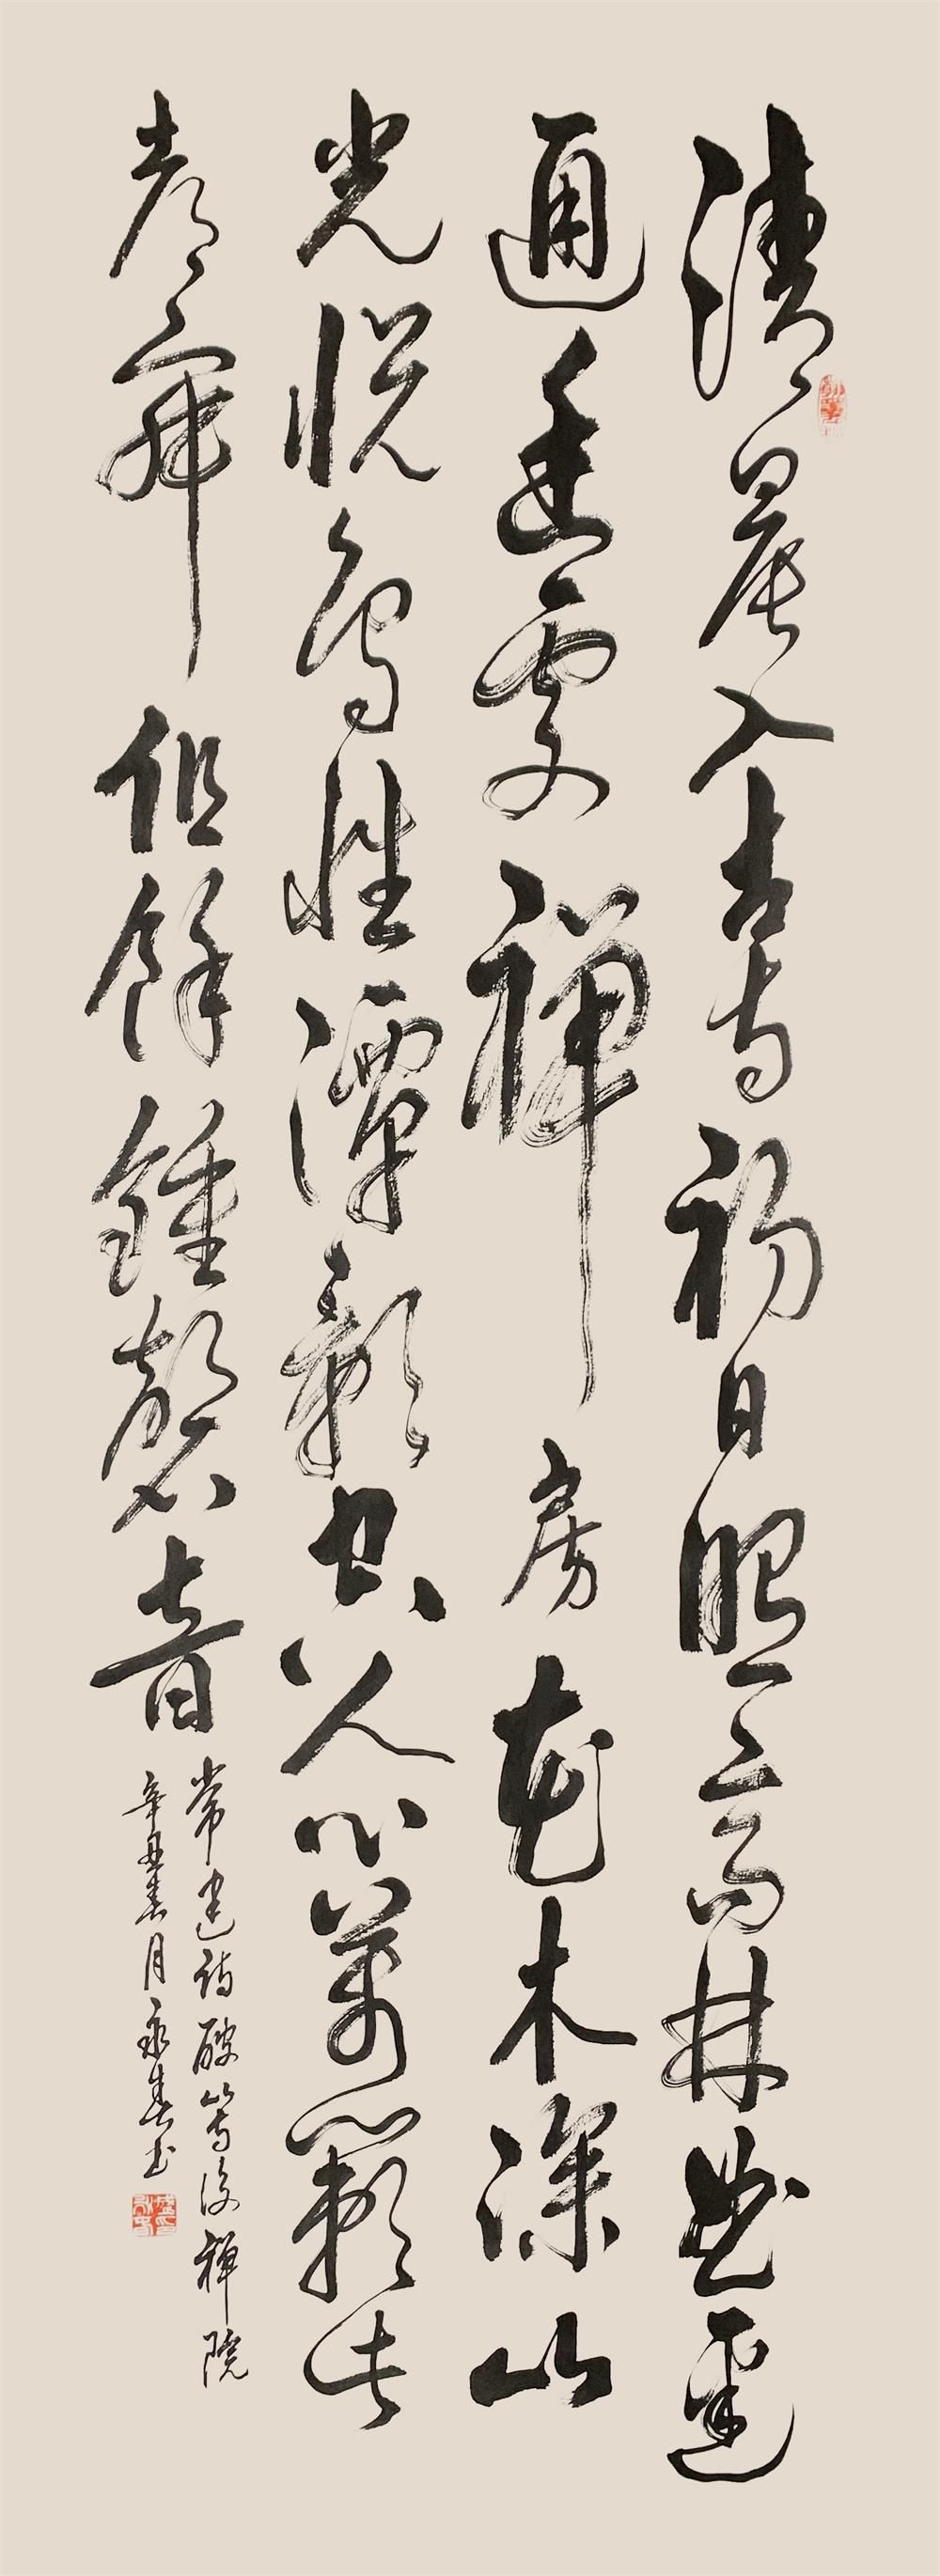 清晨入古寺初日照高林曲逕
通幽處禪房花木深山
光悅鳥性潭影空人心萬籟此
都寂但餘鍾磬音
常建詩破山寺後禪院
辛丑春月永春書